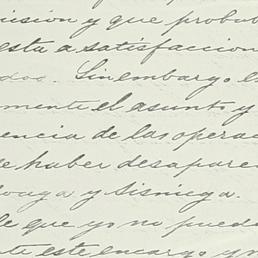 nision y que probab
esta a satisfaccion
dos. Sin embargo, e
mente el asunto y
encia de las operac
e haber desapare
y Sisniega.
le que yo no puedo
te este encargo y